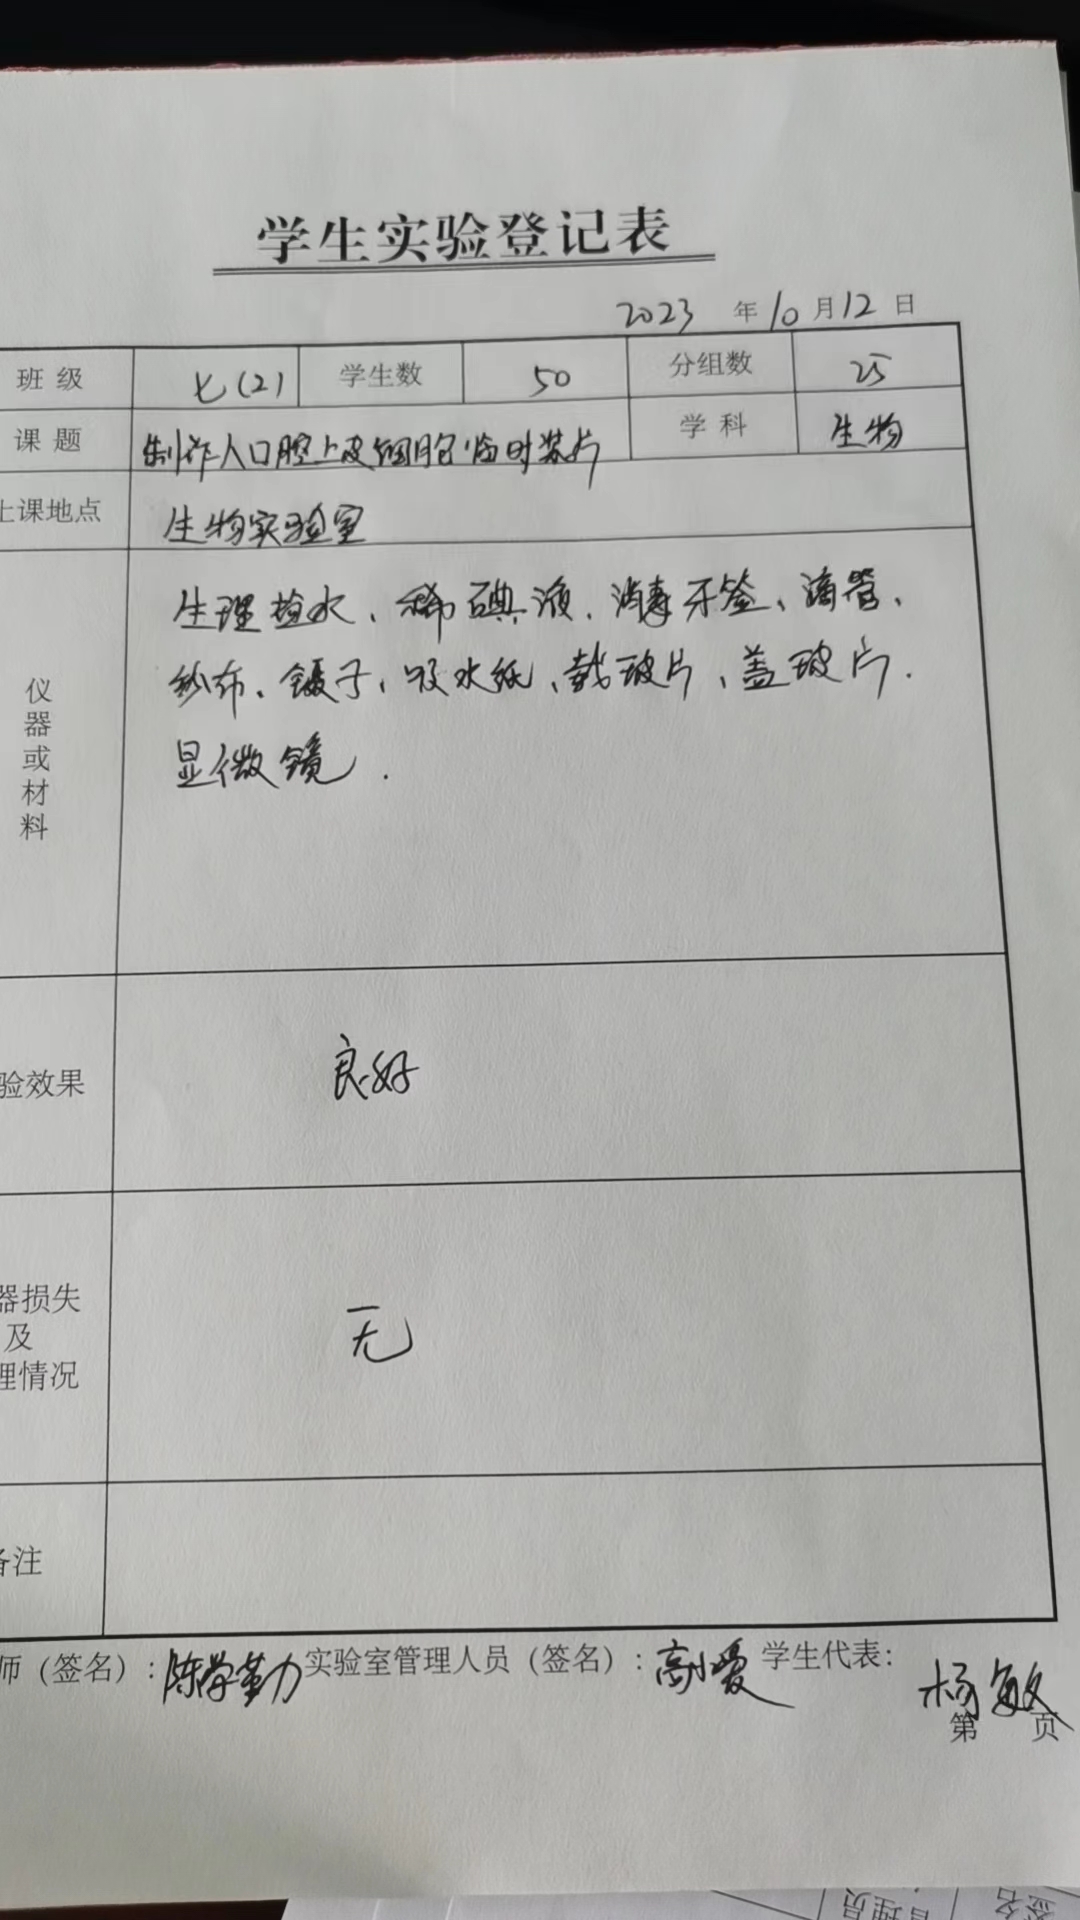 学生实验登记表
2023 年 10 月 12 日
班级 七(2) 学生数 50 分组数 25
课题 制作人口腔上皮细胞临时装片 学科 生物
上课地点 生物实验室
仪器或材料
生理盐水、稀碘液、消毒牙签、滴管、
纱布、镊子、吸水纸、载玻片、盖玻片.
显微镜.
验效果 良好
器损失
及
理情况
无
备注
师（签名）: 陈学勤 实验室管理人员（签名）: 高小爱 学生代表: 杨敏
第 页
管理员
签名